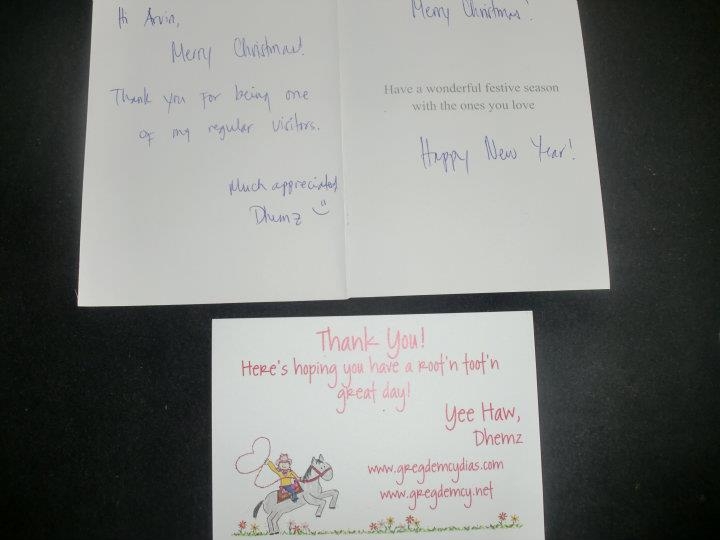 Hi Arvin,
Merry Christmas!
Thank you for being one
of my regular visitors.
Much appreciated
Dhemz
Merry Christmas!
Have a wonderful festive season
with the ones you love
Happy New Year!
Thank You!
Here's hoping you have a root'n toot'n
great day!
Yee Haw,
Dhemz
www.gregdemcydias.com
www.gregdemcy.net